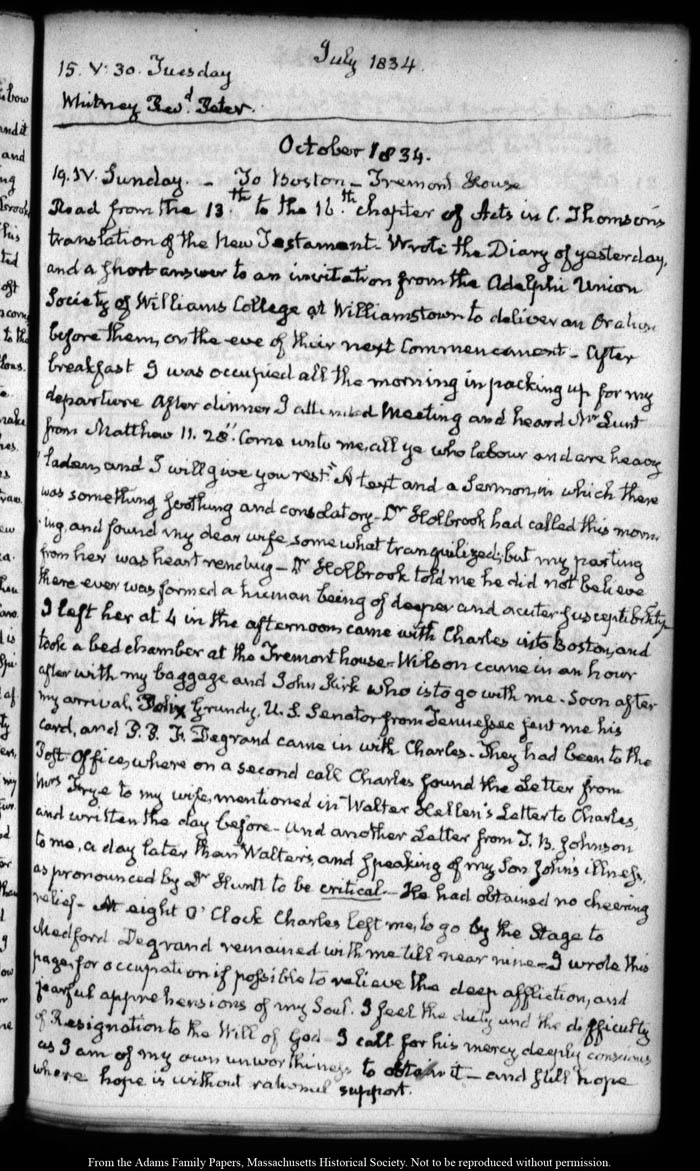 July 1834.
15. V: 30. Tuesday
Whitney Revd. Peter.
October 1834.
19. IV. Sunday. - To Boston - Tremont House
Read from the 13.th to the 16.th chapter of Acts in C. Thomson's
translation of the New Testament - Wrote the Diary of yesterday,
and a short answer to an invitation from the Adelphi Union
Society of Williams College at Williamstown to deliver an Oration
before them, on the eve of their next Commencement - After
breakfast I was occupied all the morning in packing up for my
departure After dinner I attended Meeting and heard Mr Lunt
from Matthew 11. 28 "Come unto me, all ye who labour and are heavy
laden, and I will give you rest" A text and a Sermon, in which there
was something soothing and consolatory - Dr Holbrook had called this morn-
ing, and found my dear wife somewhat tranquilized; but my parting
from her was heart rending - Dr Holbrook told me he did not believe
there ever was formed a human being of deeper and acuter susceptibility
I left her at 4 in the afternoon, came with Charles into Boston, and
took a bed chamber at the Tremont house - Wilson came in an hour
after with my baggage and John Kirk who is to go with me - Soon after
my arrival, Felix Grundy, U. S. Senator from Tennessee sent me his
card, and P. P. F. Degrand came in with Charles - They had been to the
Post-Office, where on a second call Charles found the Letter from
Mrs Frye to my wife, mentioned in Walter Hellen's Letter to Charles,
and written the day before - And another Letter from T. B. Johnson
to me, a day later than Walter's, and speaking of my Son John's illness,
as pronounced by Dr Hunt to be critical - He had obtained no cheering
relief - At eight O'Clock Charles left me, to go by the Stage to
Medford Degrand remained with me till near nine - I wrote this
page, for occupation if possible to relieve the deep affliction, and
fearful apprehensions of my Soul. I feel the duty and the difficulty
of Resignation to the Will of God - I call for his mercy deeply conscious
as I am of my own unworthiness to obtain it - and still hope
where hope is without rational support.
From the Adams Family Papers, Massachusetts Historical Society. Not to be reproduced without permission.